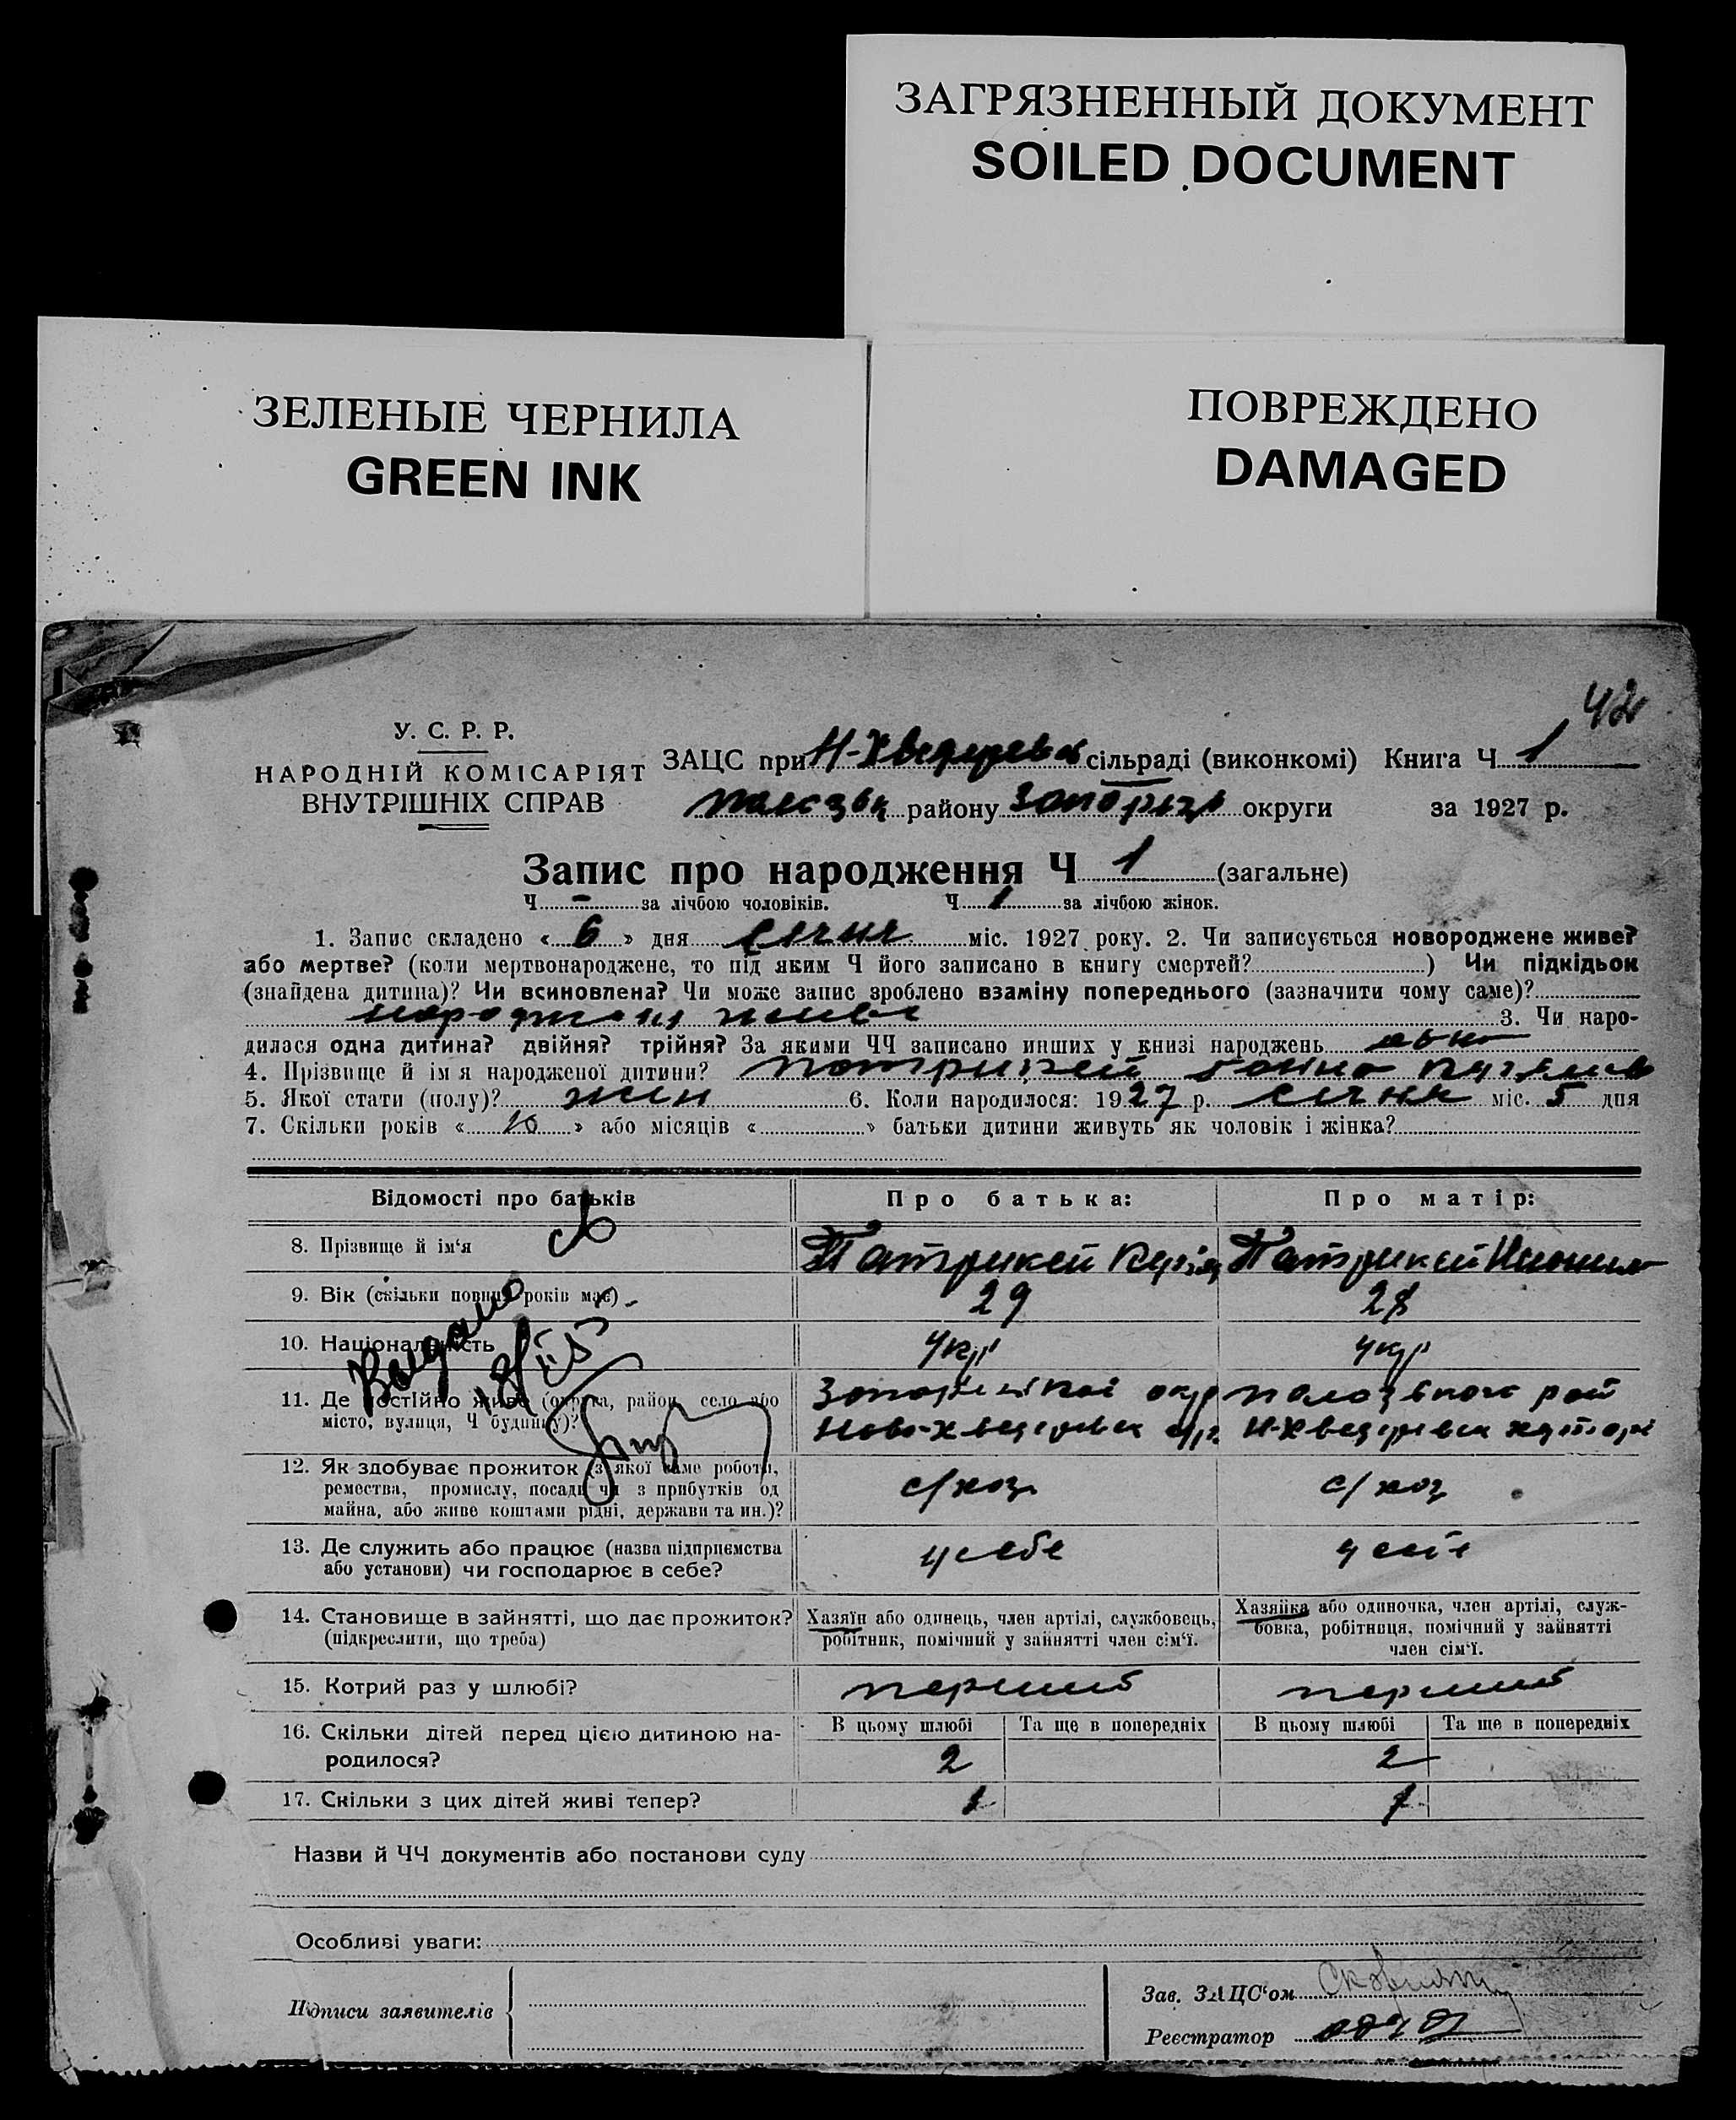 ЗАГРЯЗНЕННЫЙ ДОКУМЕНТ
SOILED DOCUMENT
ЗЕЛЕНЫЕ ЧЕРНИЛА
GREEN INK
ПОВРЕЖДЕНО
DAMAGED
42
У. С. Р. Р.
НАРОДНІЙ КОМІСАРІЯТ
ВНУТРІШНІХ СПРАВ
ЗАЦС при сільраді (виконкомі) Книга Ч 1
району округи за 1927 р.
Запис про народження Ч 1 (загальне)
Ч - за лічбою чоловіків. Ч 1 за лічбою жінок.
1. Запис складено « 6 » дня січня міс. 1927 року. 2. Чи записується новороджене живе?
або мертве? (коли мертвонароджене, то під яким Ч його записано в книгу смертей? ) Чи підкідьок
(знайдена дитина)? Чи всиновлена? Чи може запис зроблено взаміну попереднього (зазначити чому саме)?
живе 3. Чи наро-
дилася одна дитина? двійня? трійня? За якими ЧЧ записано инших у книзі народжень
4. Прізвище й ім'я народженої дитини? Патрикей
5. Якої стати (полу)? жін 6. Коли народилося: 1927 р. січня міс. 5 дня
7. Скільки років « 10 » або місяців « » батьки дитини живуть як чоловік і жінка?
Відомості про батьків Про батька: Про матір:
8. Прізвище й ім'я Патрикей Патрикей
9. Вік (скільки повних років має) 29 28
10. Національність Укр Укр
11. Де постійно живе (округа, район, село або
місто, вулиця, Ч будинку)?
Видано
12. Як здобуває прожиток (з якої саме роботи,
ремества, промислу, посади чи з прибутків од
майна, або живе коштами рідні, держави та ин.)?
с/хоз с/хоз
13. Де служить або працює (назва підприємства
або установи) чи господарює в себе?
у себе у себе
14. Становище в зайнятті, що дає прожиток?
(підкреслити, що треба)
Хазяїн або одинець, член артілі, службовець,
робітник, помічний у зайнятті член сім'ї.
Хазяйка або одиночка, член артілі, служ-
бовка, робітниця, помічний у зайнятті
член сім'ї.
15. Котрий раз у шлюбі? перший перший
16. Скільки дітей перед цією дитиною на-
родилося?
В цьому шлюбі Та ще в попередніх В цьому шлюбі Та ще в попередніх
2 2
17. Скільки з цих дітей живі тепер? 1 1
Назви й ЧЧ документів або постанови суду
Особливі уваги:
Підписи заявителів
Зав. ЗАЦС'ом
Реєстратор